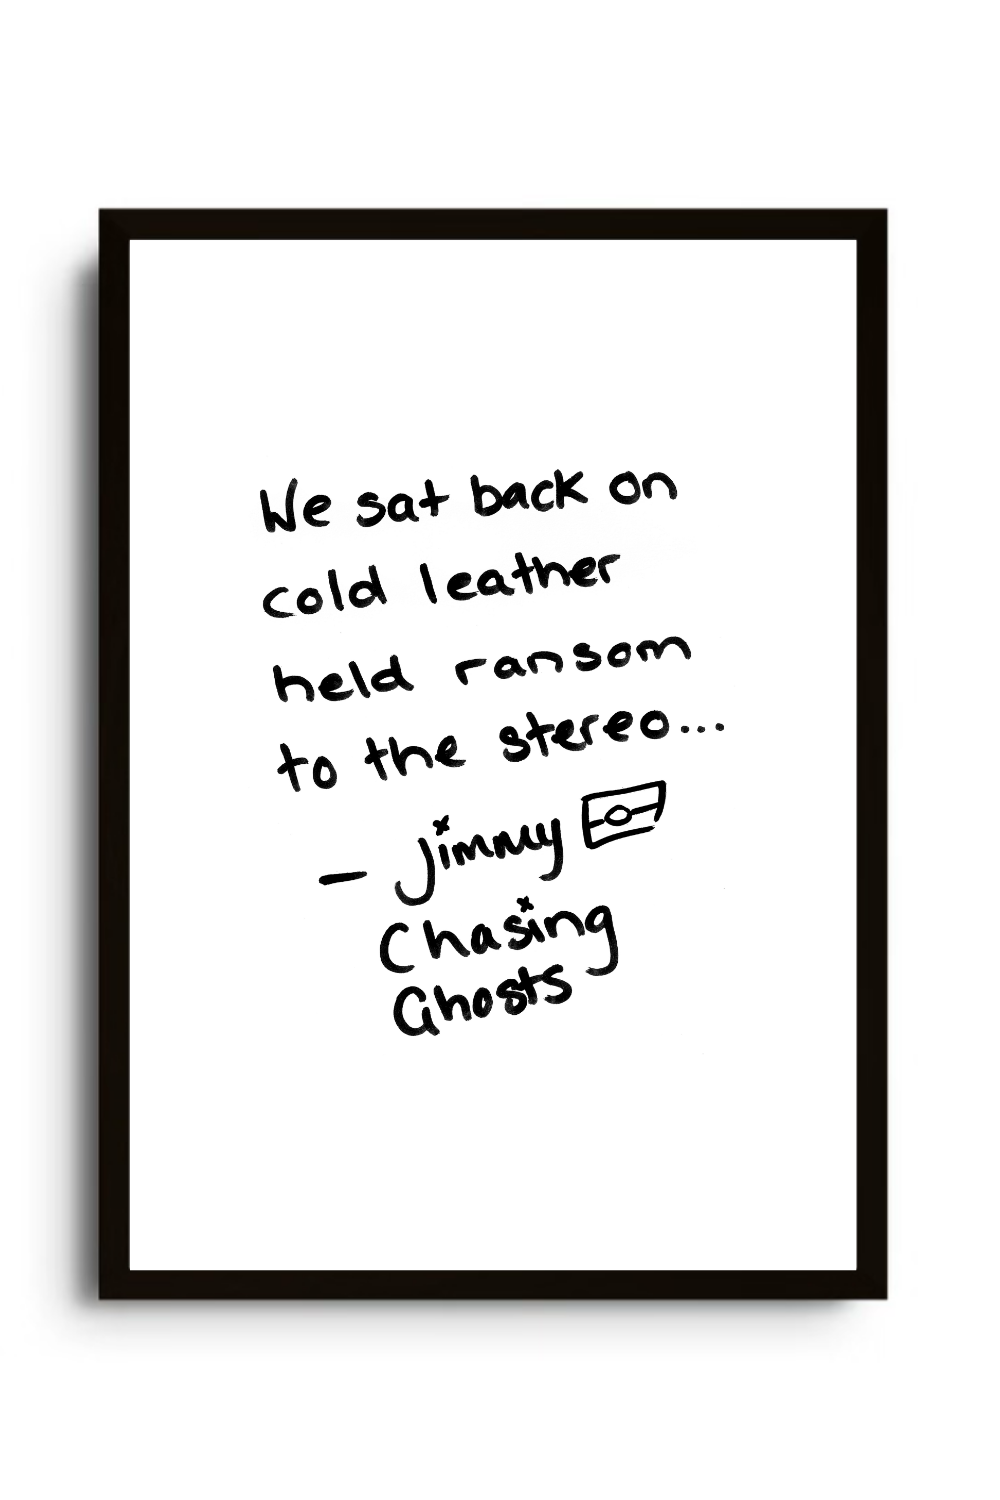 We sat back on
cold leather
held ransom
to the stereo...
– Jimmy
Chasing
Ghosts